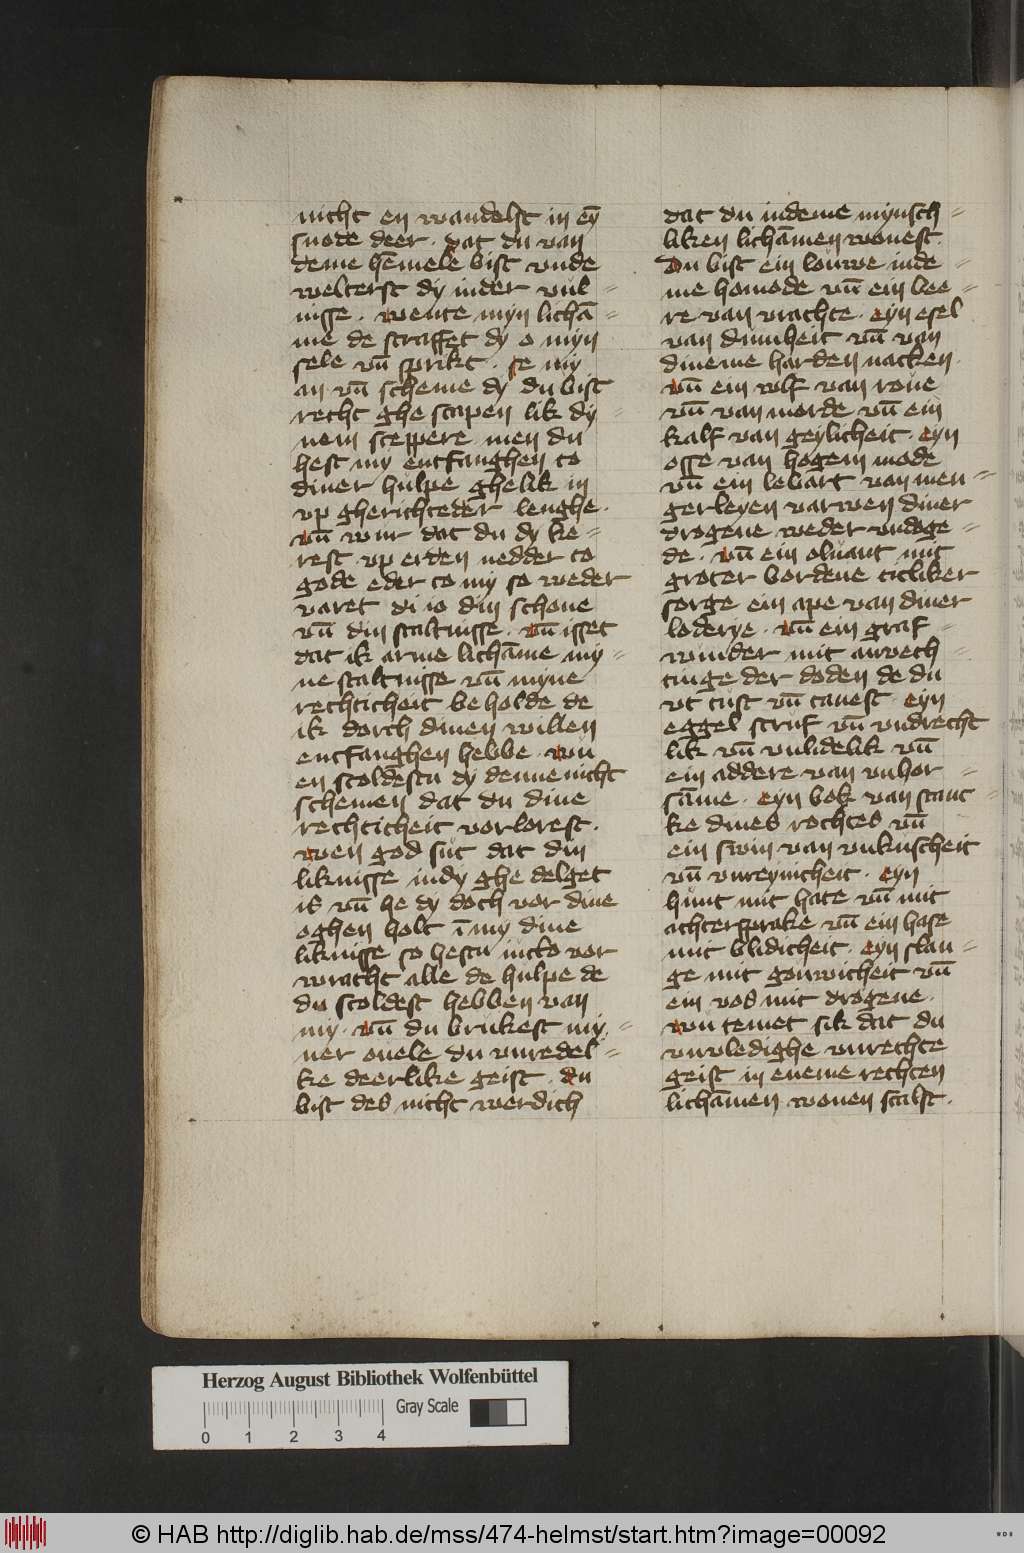 nicht en wandelst in eȳ
snode deer · dat du van
deme hēmele bist vnde
welterst dy in der vul =
nisse · wente myn lichā =
me de straffet dy o myn
sele vn̄ sprikt · se my
an vn̄ scheme dy du bist
recht ghe scapen lik dy =
nem sceppere men du
hest my entfanghen to
diner hulpe ghelik in
vp gherichteder lenghe ·
vn̄ wur dat du dy ke =
rest vp erden nedder to
gode eder to my so weder
varet di io din schone
vn̄ din staltnisse · vn̄ isset
dat ik arme lichāme my =
ne staltnisse vn̄ myne
rechticheit be holde de
ik dorch dinen willen
entfanghen hebbe · wu
en scoldestu dy denne nicht
schemen dat du dine
rechticheit vorlorest ·
wen god sut dat din
liknisse in dy ghe delget
is vn̄ he dy doch vor dine
oghen holt ī my dine
liknisse so hestu
wracht alle de hulpe de
du scoldest hebben van
my · vn̄ du brukest my =
ner ouele du vnredel =
ke deerlike geist · du
bist des nicht werdich
dat du in deme mynsch =
liken lichāmen wonest ·
Du bist ein louwe in de =
me homode vn̄ ein bee =
re van wrachte · eyn esel
van dumheit vn̄ van
dineme harden nacken ·
vn̄ ein wlf van roue
vn̄ van morde vn̄ ein
kalf van geylicheit · eyn
osse van hogem mode
vn̄ ein lebart van men =
gerleyen varwen diner
drogene weder vndoge =
de · vn̄ ein oluant mit
groter bordene titliker
sorge ein ape van diner
loderye · vn̄ ein graf =
winder mit anvech =
tinge der doden de du
vt tust vn̄ tauest · eyn
eggel struf vn̄ vndrecht
lik vn̄ vnlidelik vn̄
ein addere van vnhor =
sāme · eyn bok van stanc =
ke dines rochtes vn̄
ein swin van vnkuscheit
vn̄ vnreynicheit · eyn
hunt mit hate vn̄ mit
achtersprake vn̄ ein hase
mit blidicheit · eyn slan =
ge mit gouwicheit vn̄
ein vos mit drogene ·
wu temet sik dat du
vnvledighe vnrechte
geist in eneme rechten
lichāmen wonen scalst ·
Herzog August Bibliothek Wolfenbüttel
Gray Scale
0 1 2 3 4
© HAB http://diglib.hab.de/mss/474-helmst/start.htm?image=00092